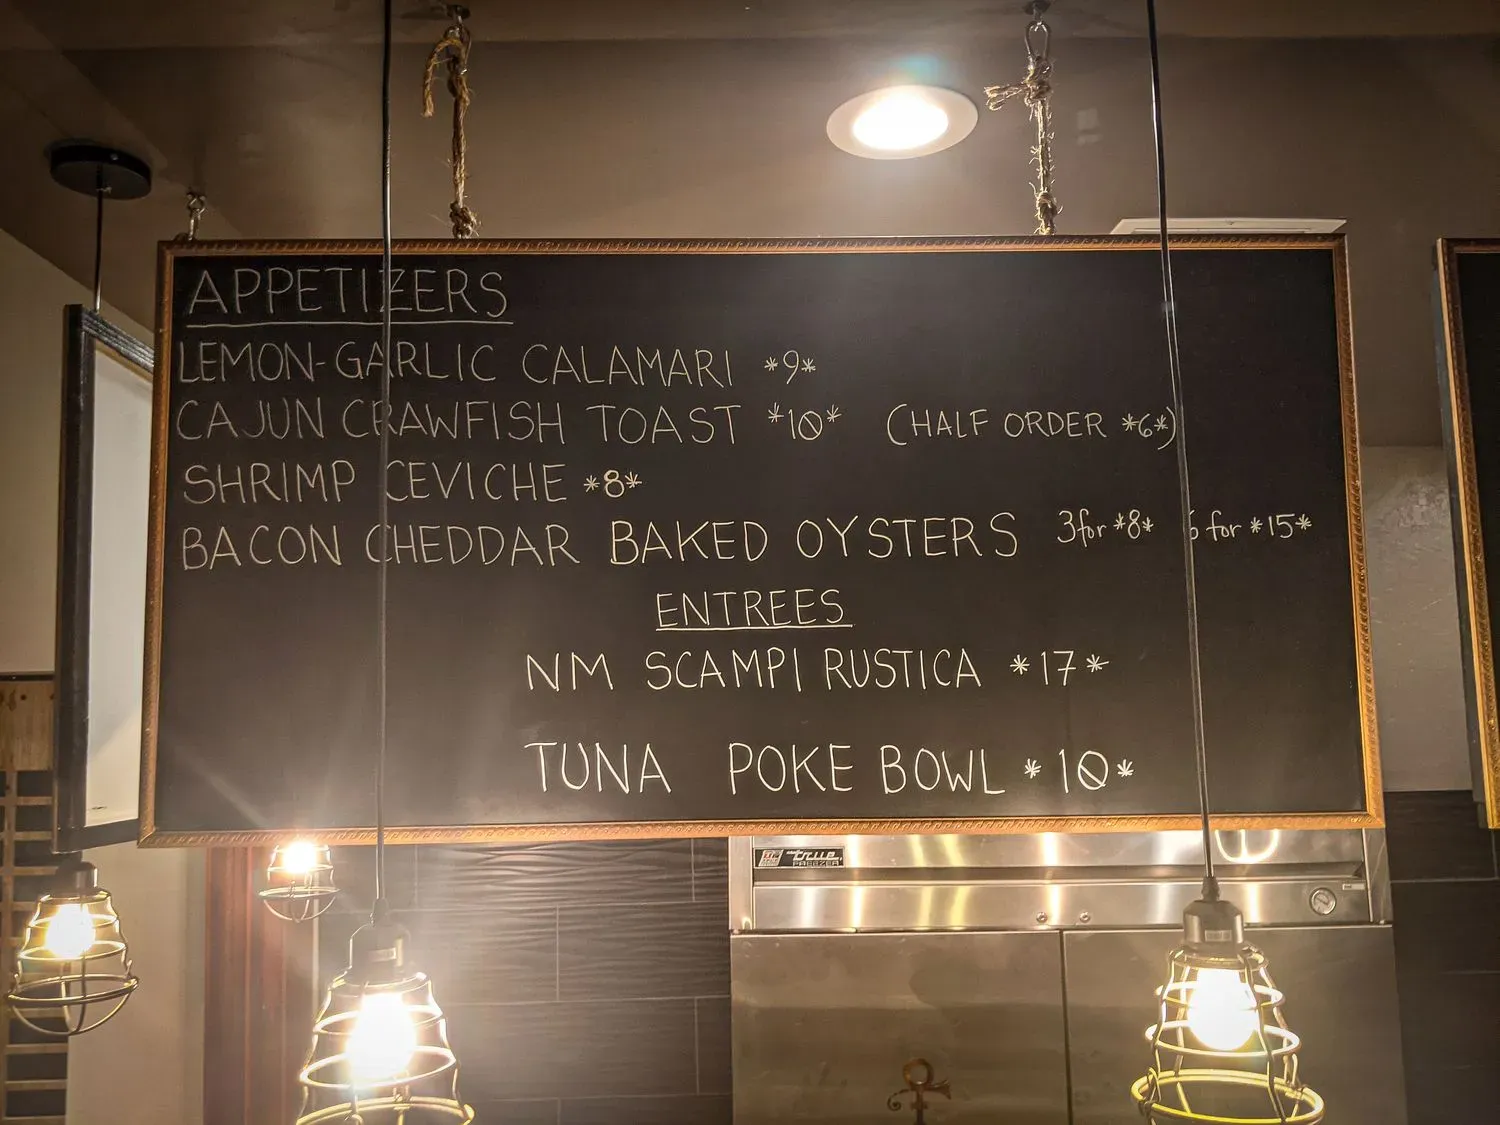 APPETIZERS
LEMON-GARLIC CALAMARI *9*
CAJUN CRAWFISH TOAST *10* (HALF ORDER *6*)
SHRIMP CEVICHE *8*
BACON CHEDDAR BAKED OYSTERS 3 for *8* 6 for *15*
ENTREES
NM SCAMPI RUSTICA *17*
TUNA POKE BOWL *10*
true
FREEZER